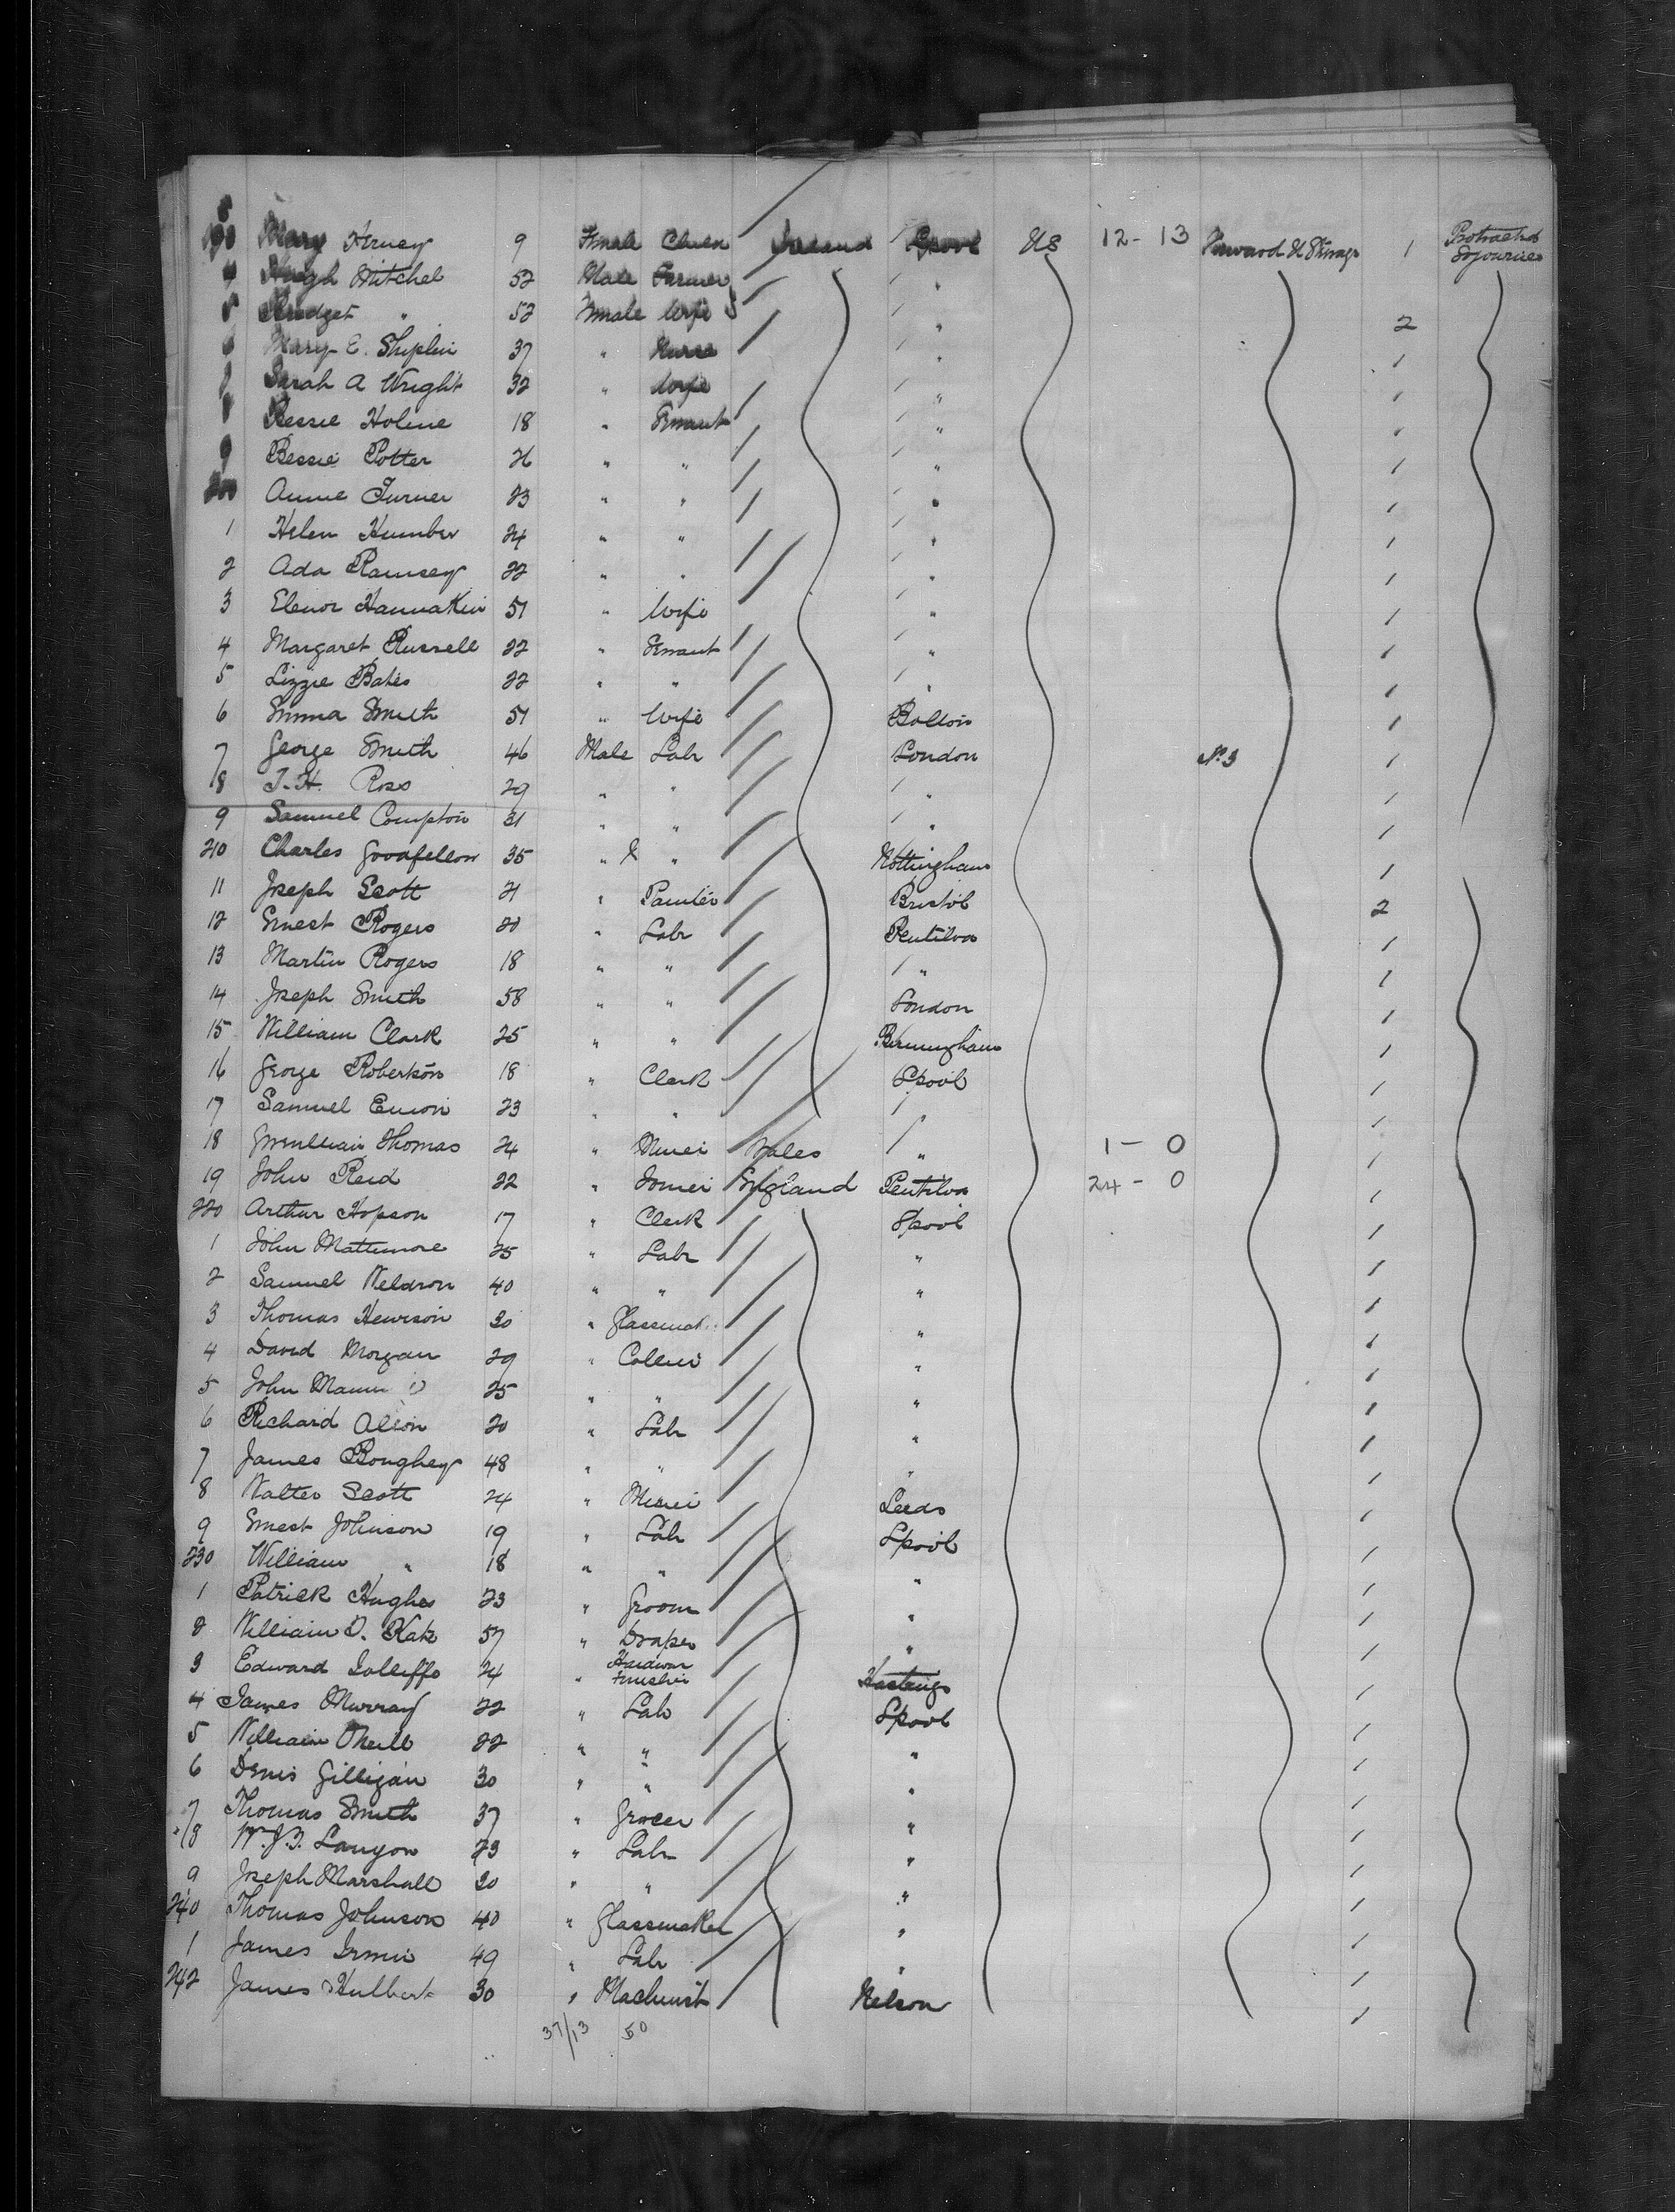 Mary Herney 9 Female Child Ireland Lpool US 12-13 Forward U Steerage 1 Protracted Sojourner
4 Hugh Mitchel 52 Male Farmer "
5 Bridget " 52 Female Wife " 2
6 Mary E. Shiplin 37 " Nurse " 1
7 Sarah A Wright 32 " Wife " 1
8 Bessie Holme 18 " Servant " 1
9 Bessie Potter 26 " " " 1
200 Annie Turner 23 " " " 1
1 Helen Humber 24 " " " 1
2 Ada Ramsey 22 " " " 1
3 Elenor Hannakin 51 " Wife " 1
4 Margaret Russell 22 " Servant " 1
5 Lizzie Bates 22 " " " 1
6 Emma Smith 51 " Wife Bolton 1
7 George Smith 46 Male Labr London No 3 1
8 T. H. Ross 29 " " " 1
9 Samuel Compton 31 " " " 1
210 Charles Goodfellow 35 " X " Nottingham 1
11 Joseph Scott 21 " Painter Bristol 2
12 Ernest Rogers 20 " Labr 1
13 Martin Rogers 18 " " " 1
14 Joseph Smith 58 " " London 1
15 William Clark 25 " " Birmingham 1
16 George Robertson 18 " Clerk Lpool 1
17 Samuel 23 " " 1
18 Thomas 24 " Miner Wales " 1 - 0 1
19 John Reid 22 " England 24 - 0 1
220 Arthur Hopson 17 " Clerk Lpool 1
1 John Mattimore 25 " Labr " 1
2 Samuel Weldron 40 " " " 1
3 Thomas Hewison 30 " Glassmak " 1
4 David Morgan 29 " Collier " 1
5 John Mann 25 " " " 1
6 Richard 20 " Labr " 1
7 James Boughey 48 " " " 1
8 Walter Scott 24 " Miner Leeds 1
9 Ernest Johnson 19 " Labr Lpool 1
230 William " 18 " " " 1
1 Patrick Hughes 23 " Groom " 1
2 William D. 57 " Draper " 1
3 Edward Jolliffe 24 " Hardwar Finisher Hastings 1
4 James Murray 22 " Labr Lpool 1
5 William ONeill 22 " " " 1
6 Denis Gilligan 30 " " " 1
7 Thomas Smith 37 " Grocer " 1
8 W. J. B. Lanyon 23 " Labr " 1
9 Joseph Marshall 20 " " " 1
240 Thomas Johnson 40 " Glassmaker " 1
1 James Irwin 49 " Labr " 1
242 James Hulbert 30 " Machinist Nelson 1
37/13 50